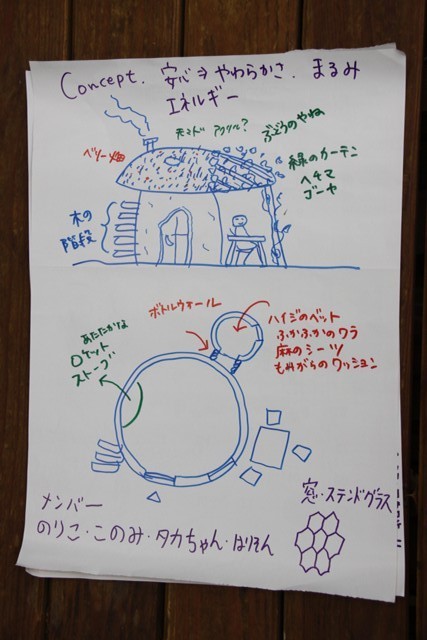 Concept. 安心⇒やわらかさ. まるみ
エネルギー
天マド アクリル?
ぶどうのやね
ベリー畑
緑のカーテン
ヘチマ
ゴーヤ
木の
階段
ボトルウォール
ハイジのベット
ふかふかのワラ
麻のシーツ
もみがらのクッション
あたたかな
ロケット
ストーブ
窓・ステンドグラス
メンバー
のりこ・このみ・タカちゃん・はりえん